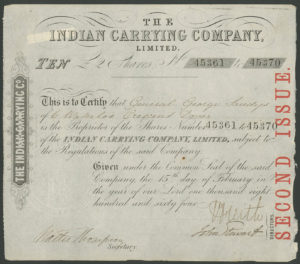 THE
INDIAN CARRYING COMPANY,
LIMITED.
TEN £2 Shares Nos 45361 to 45370
This is to Certify that General George
of 6 Waterloo Crescent Dover
is the Proprietor of the Shares Number 45361 to 45370
of the INDIAN CARRYING COMPANY, LIMITED, subject to
the Regulations of the said Company.
Given under the Common Seal of the said
Company, the 15th day of February in
the year of our Lord one thousand eight
hundred and sixty four.
Walter
Secretary.
John Stewart
DIRECTORS.
THE INDIAN CARRYING CO.
SECOND ISSUE